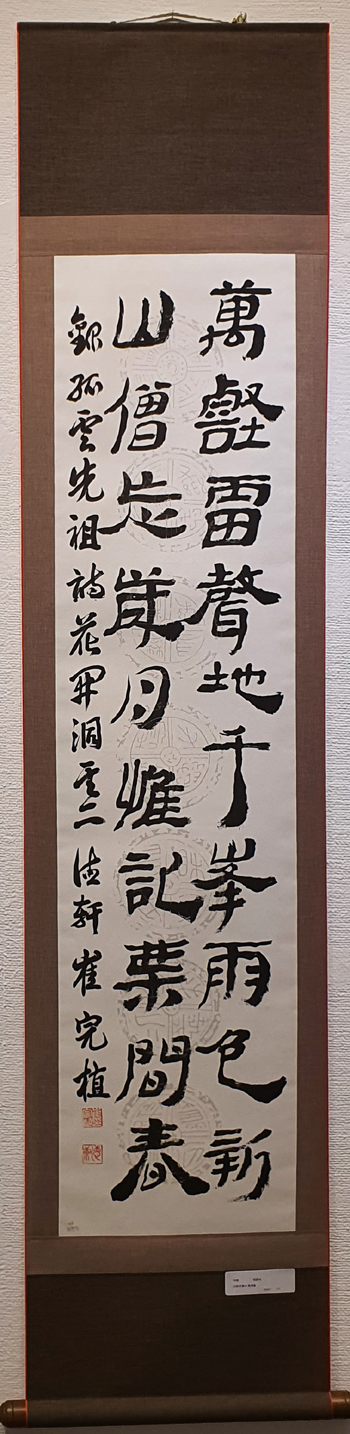 萬壑雷聲地千峯雨色新
山僧忘歲月惟記葉間春
錄孤雲先祖詩花開洞其二 軒崔完植